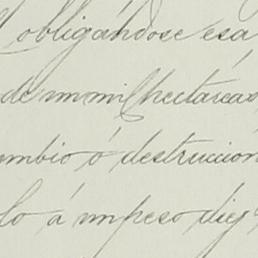 obligándose esa
de un mil hectáreas
ambio ó destrucción
lo á un peso diez